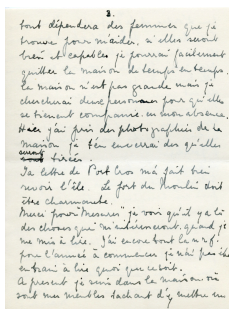 3.
tout dépendera des femmes que je
trouve pour m'aider, si elles seront
bien et capables je pourrai facilement
quitter la maison de temps en temps.
La maison n'est pas grande mais je
chercherai deux personnes pour qu'elles
se tiennent compagnie en mon absence.
Hier j'ai pris des photographies de la
maison je t'en enverrai dès qu'elles
seront tirées.
Ta lettre de Port Cros m'a fait bien
revoir l'île. Le fort du Moulin doit
être charmante.
Merci pour Mesures, je vois qu'il y a là
des choses que m'intéresseront, quand je
me mis à lire. J'ai encore tout la n.r.f.
pour l'année à commencer je n'ai pas
entrain à lire quoi que ce soit.
A present je suis dans la maison où
sont mes meubles tachant d'y mettre un